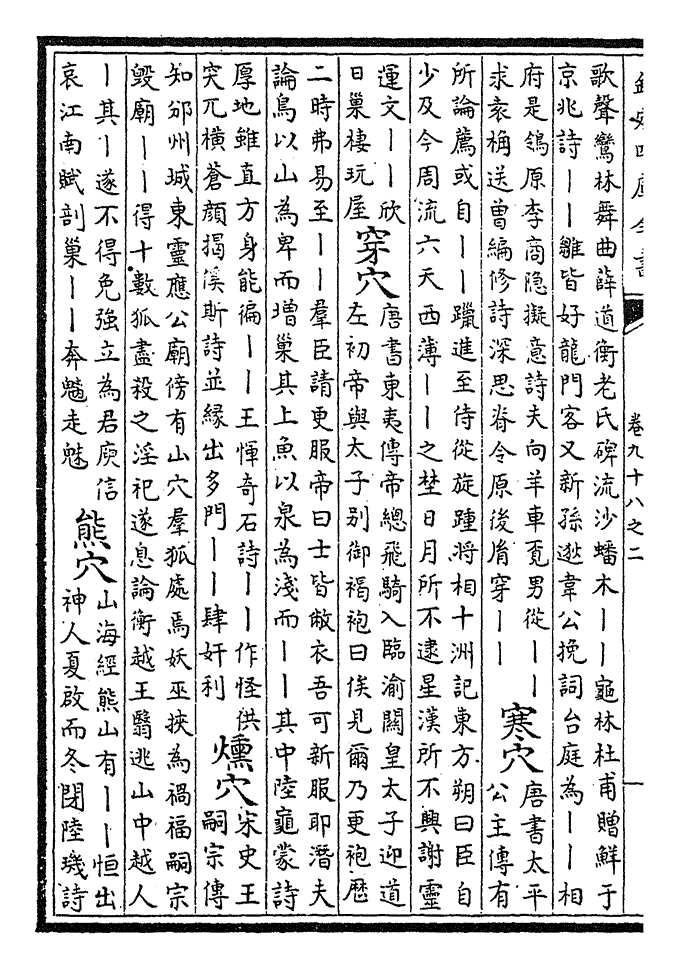 欽定四庫全書
卷九十八之二
一
歌聲鸞林舞曲薛道衡老氏碑流沙蟠木｜｜龜林杜甫贈鮮于
京兆詩｜｜雛皆好龍門客又新孫逖韋公挽詞台庭為｜｜相
府是鴒原李商隐擬意詩夫向羊車覓男從｜｜
求袁桷送曾編修詩深思脊令原後胷穿｜｜
寒穴
唐書太平
公主傳有
所論薦或自｜｜躐進至侍從旋踵將相十洲記東方朔曰臣自
少及今周流六天西薄｜｜之埜日月所不逮星漢所不興謝靈
運文｜｜欣
日巢棲玩屋
穿穴
唐書東夷傳帝總飛騎入臨渝關皇太子迎道
左初帝與太子别御褐袍曰俟見爾乃更袍歷
二時弗易至｜｜羣臣請更服帝曰士皆敝衣吾可新服耶潛夫
論鳥以山為卑而増巢其上魚以泉為淺而｜｜其中陸龜蒙詩
厚地雖直方身能徧｜｜王惲奇石詩｜｜作怪供
突兀橫蒼顔揭傒斯詩並縁出多門｜｜肆奸利
燻穴
宋史王
嗣宗傳
知邠州城東靈應公廟傍有山穴羣狐處焉妖巫挾為禍福嗣宗
毀廟｜｜得十數狐盡殺之淫祀遂息論衡越王翳逃山中越人
｜其｜遂不得免強立為君庾信
哀江南賦剖巢｜｜奔魑走魅
熊穴
山海經熊山有｜｜恒出
神人夏啟而冬閉陸璣詩